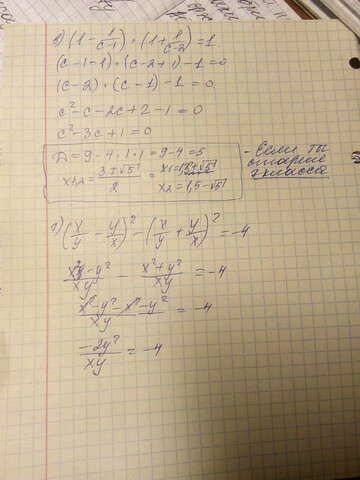 в) (1 - 1/(c-1)) · (1 + 1/(c-2)) = 1
(c-1-1) · (c-2+1) - 1 = 0
(c-2) · (c-1) - 1 = 0
c² - c - 2c + 2 - 1 = 0
c² - 3c + 1 = 0
D = 9 - 4 · 1 · 1 = 9 - 4 = 5
x1,2 = (3 ± √5)/2 = x1 = 1,5 + √5
x2 = 1,5 - √5
- Если ты
старше
7 класса
г) (x/y - y/x)² - (x/y + y/x)² = -4
(x² - y²)/xy - (x² + y²)/xy = -4
(x² - y² - x² - y²)/xy = -4
-2y²/xy = -4